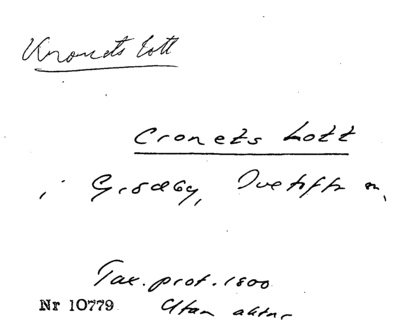 Kronets lott
Cronets Lott
i Grödby, Ovetofta sn,
Tax. prot. 1800
Nr 10779 Utan aktnr